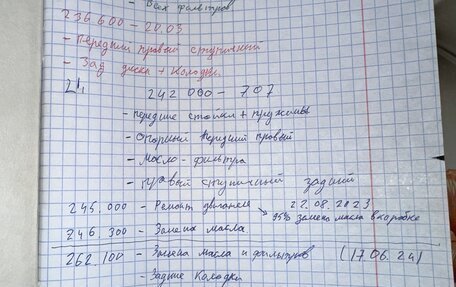 всех фильтров
236.600 - 20.03
- Передний правый ступичный
- Зад диска + Колодки.
242 000 - 707
- передние стойки + пружины
- Опорный передний правый
- Масло - фильтра
- правый ступичный задний
245.000 - Ремонт двигателя 22.08.2023
246.300 - Замена масла 95% замена масла в коробке
262.100 - Замена масла и фильтров (17.06.24)
- Задние Колодки